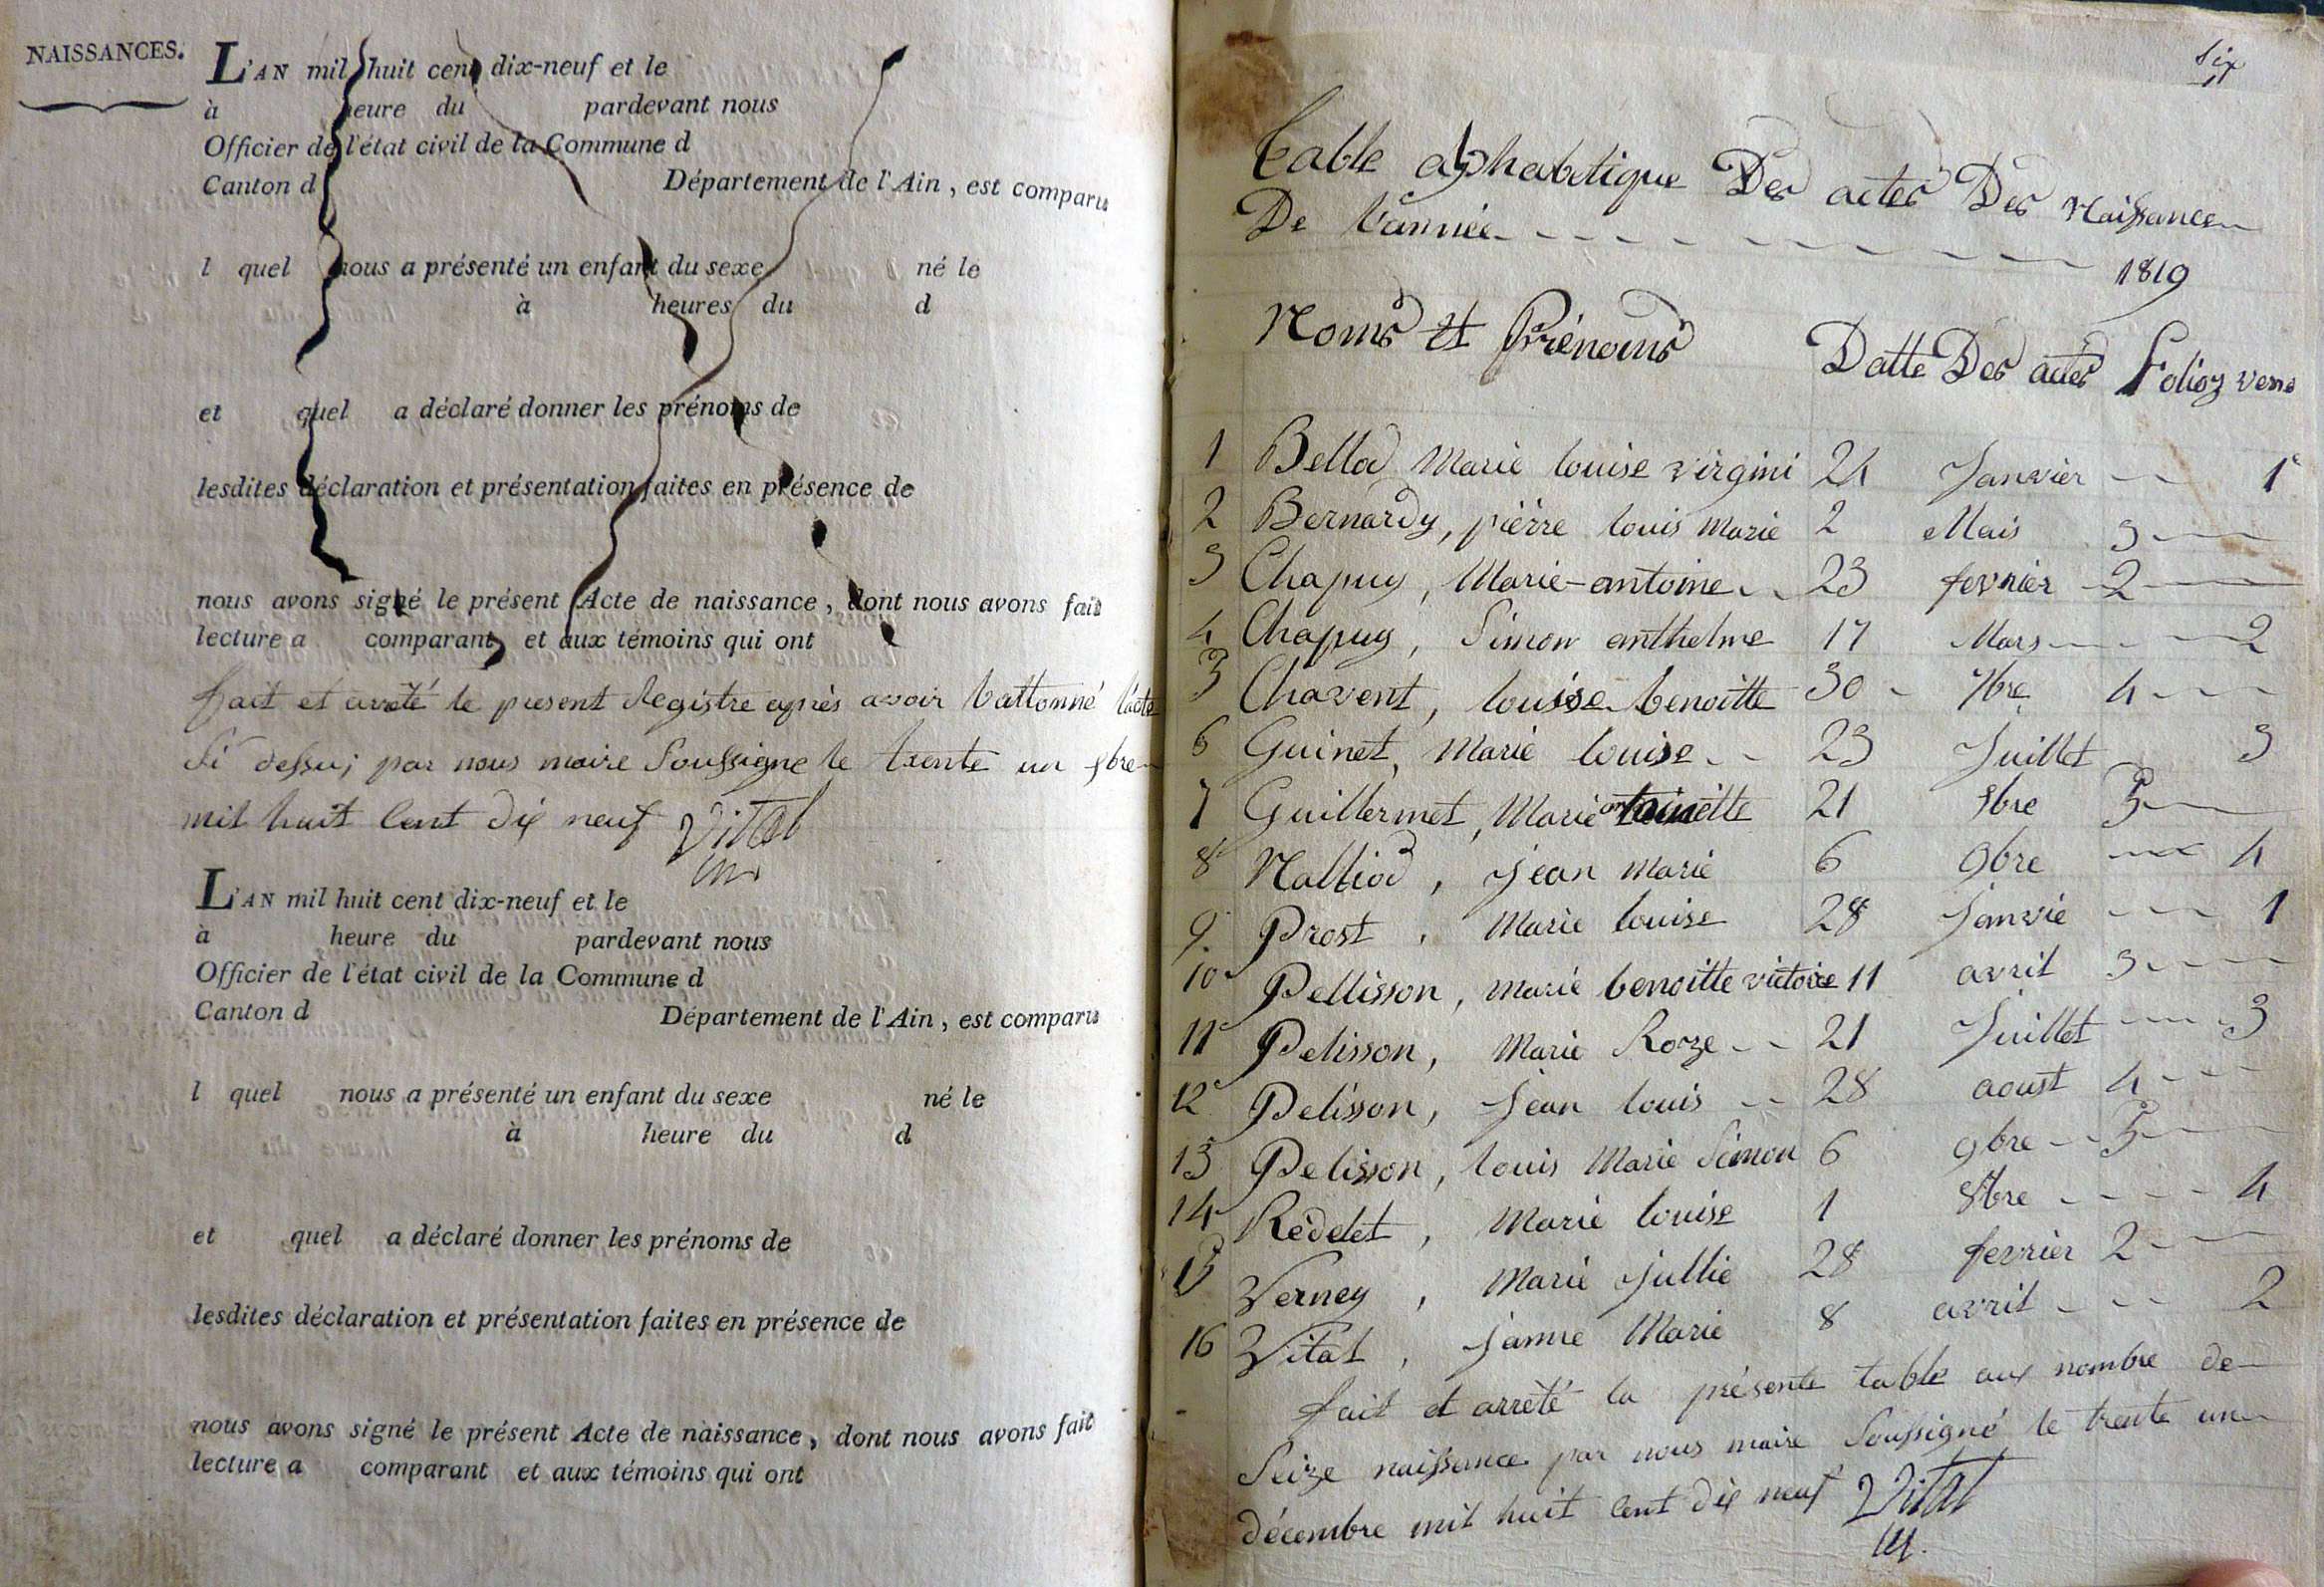 NAISSANCES.
L'AN mil huit cent dix-neuf et le
à heure du pardevant nous
Officier de l'état civil de la Commune d
Canton d Département de l'Ain, est comparu
l quel nous a présenté un enfant du sexe né le
à heures du d
et quel a déclaré donner les prénoms de
lesdites déclaration et présentation faites en présence de
nous avons signé le présent Acte de naissance, dont nous avons fait
lecture a comparant et aux témoins qui ont
fait et areté le present Registre après avoir battonné l'acte
si dessu; par nous maire Soussigne le trente un
mil huit Cent dix neuf Vital
L'AN mil huit cent dix-neuf et le
à heure du pardevant nous
Officier de l'état civil de la Commune d
Canton d Département de l'Ain, est comparu
l quel nous a présenté un enfant du sexe né le
à heure du d
et quel a déclaré donner les prénoms de
lesdites déclaration et présentation faites en présence de
nous avons signé le présent Acte de naissance, dont nous avons fait
lecture a comparant et aux témoins qui ont
six
Table alphabetique Des actes Des Naissance
De l'année 1819
Noms et Prénoms Datte Des actes Folioz
1 Bellod Marie louise virgini 24 Janvier 1
2 Bernardy, pierre louis marie 2 Mais 3
3 Chapuy, Marie-antoine 23 fevrier 2
4 Chapuy, Simon anthelme 17 Mars 2
5 Chavent, louise benoitte 30 7bre 4
6 Guinet, Marie louise 23 Juillet 3
7 Guillermet, Marie antoinette 21 9bre 5
8 Nalliod, jean marie 6 9bre 4
9 Prost, Marie louise 28 Janvie 1
10 Pellisson, marie benoitte victoire 11 avril 3
11 Pelisson, Marie Roze 21 Juillet 3
12 Pelisson, jean louis 28 aoust 4
13 Pelisson, louis Marie Simon 6 9bre 5
14 Redelet, Marie louise 1 8bre 4
15 Verney, Marie jullie 28 fevrier 2
16 Vital, janne Marie 8 avril 2
fait et arreté la présente table aux nombre de
Seize naissance par nous maire Soussigné le trente un
décembre mil huit Cent dix neuf Vital